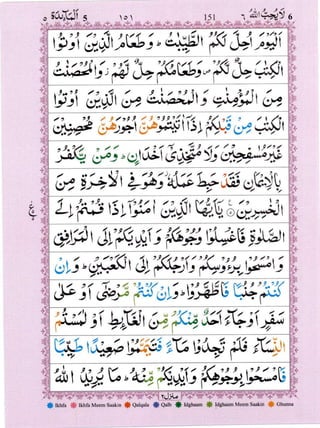 لَا يُحِبُّ اللهُ ٦ 151 ١٥١ اَلْمَآئِدَة ٥
اَلْيَوْمَ اُحِلَّ لَكُمُ الطَّيِّبٰتُ ؕ وَطَعَامُ الَّذِيْنَ اُوْتُوا
الْكِتٰبَ حِلٌّ لَّكُمْ ۪ وَطَعَامُكُمْ حِلٌّ لَّهُمْ ؗ وَالْمُحْصَنٰتُ
مِنَ الْمُؤْمِنٰتِ وَالْمُحْصَنٰتُ مِنَ الَّذِيْنَ اُوْتُوا
الْكِتٰبَ مِنْ قَبْلِكُمْ اِذَاۤ اٰتَيْتُمُوْهُنَّ اُجُوْرَهُنَّ مُحْصِنِيْنَ
غَيْرَ مُسٰفِحِيْنَ وَلَا مُتَّخِذِيْۤ اَخْدَانٍ ؕ وَمَنْ يَّكْفُرْ
بِالْاِيْمَانِ فَقَدْ حَبِطَ عَمَلُهٗ ؗ وَهُوَ فِي الْاٰخِرَةِ مِنَ
الْخٰسِرِيْنَ ۝ يٰۤاَيُّهَا الَّذِيْنَ اٰمَنُوْۤا اِذَا قُمْتُمْ اِلَى
الصَّلٰوةِ فَاغْسِلُوْا وُجُوْهَكُمْ وَاَيْدِيَكُمْ اِلَى الْمَرَافِقِ
وَامْسَحُوْا بِرُءُوْسِكُمْ وَاَرْجُلَكُمْ اِلَى الْكَعْبَيْنِ ؕ وَاِنْ
كُنْتُمْ جُنُبًا فَاطَّهَّرُوْا ؕ وَاِنْ كُنْتُمْ مَّرْضٰۤى اَوْ عَلٰى
سَفَرٍ اَوْ جَآءَ اَحَدٌ مِّنْكُمْ مِّنَ الْغَآئِطِ اَوْ لٰمَسْتُمُ
النِّسَآءَ فَلَمْ تَجِدُوْا مَآءً فَتَيَمَّمُوْا صَعِيْدًا طَيِّبًا
فَامْسَحُوْا بِوُجُوْهِكُمْ وَاَيْدِيْكُمْ مِّنْهُ ؕ مَا يُرِيْدُ اللّٰهُ
منزل ٢
Ikhfa Ikhfa Meem Saakin Qalqala Qalb Idghaam Idghaam Meem Saakin Ghunna